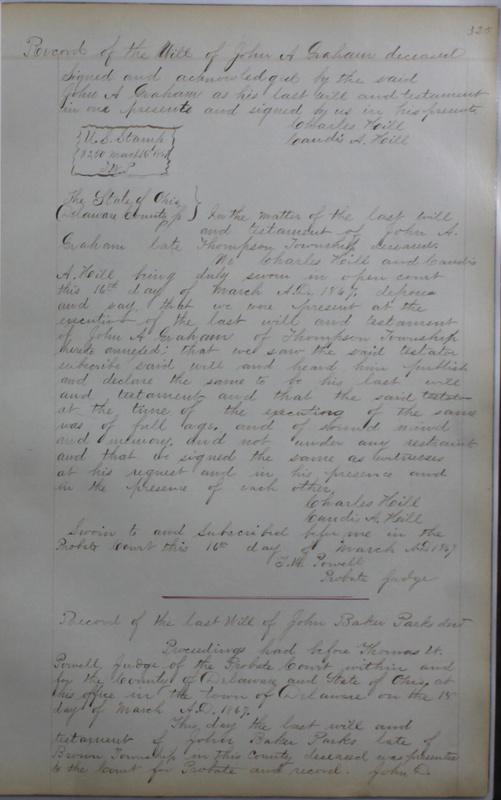 325
Record of the Will of John A Graham deceased
Signed and acknowledged by the said
John A Graham as his last will and testament
in our presents and signed by us in his presents
Charles Hill
Candis A. Hill
U.S. Stamp
The State of Ohio
Delaware County, ss
In the matter of the last will
and testament of John A.
Graham late Thompson Township deceased.
We Charles Hill and Candis
A. Hill being duly sworn in open court
this 16th day of March A.D. 1867, depose
and say, that we were present at the
execution of the last will and testament
of John A Graham of Thompson Township
hereto annexed; that we saw the said testator
subscribe said will and heard him publish
and declare the same to be his last will
and testament and that the said testator
at the time of the executing of the same
was of full age, and of sound mind
and memory, and not under any restraint
and that we signed the same as witnesses
at his request and in his presence and
in the presence of each other,
Charles Hill
Candis A. Hill
Sworn to and Subscribed before me in the
Probate Court this 16th day of March A.D. 1867
T. W. Powell
Probate Judge
Record of the last Will of John Baker Parks decd
Proceedings had before Thomas W.
Powell, Judge of the Probate Court within and
for the County of Delaware and State of Ohio, at
his office in the town of Delaware on the 18
day of March A.D. 1867.
This day the last will and
testament of John Baker Parks late of
Brown Township in this County deceased was presented
to the Court for Probate and record. John